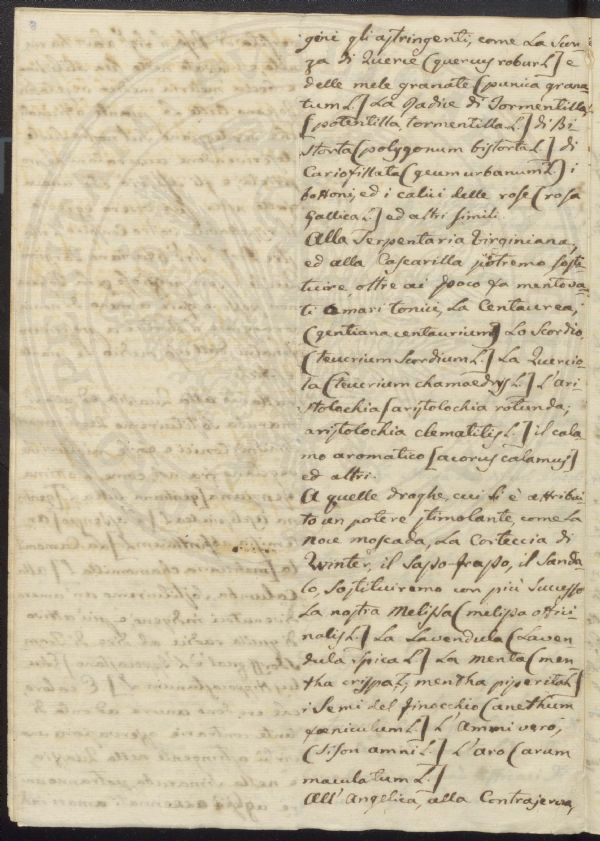 8
geni gli astringenti, come La Scor
za di Querce (quercus robur L.] e
delle mele granate (punica grana=
tum L.] La Radice di Tormentilla,
[potentilla tormentilla L.] di Bi
storta (polygonum bistorta L.] di
Cariofillata (geum urbanum L.] i
bottoni, ed i calici delle rose (rosa
Gallica L.] ed altri simili.
Alla Serpentaria Virginiana,
ed alla Cascarilla potremo sosti
tuire, oltre ai poco fa mentova
ti Amari tonici, La Centaurea,
(gentiana centaurium] Lo Scordio,
(teucrium Scordium L.] La Quercio
la (teucrium chamaedrys L.] L'ari
stolochia [aristolochia rotunda;
aristolochia clematitis L.] il cala
mo aromatico [acorus calamus]
ed altri.
A quelle droghe, cui si è attribui
to un potere stimolante, come La
noce moscada, La Corteccia di
Winter, il Sasso-frasso, il Sanda
lo, Sostituiremo con più Successo
La nostra Melissa (melissa offici
nalis L.] La Lavendula (Laven
dula spica L.] La menta (men
tha crispa L; mentha piperita L]
i Semi del finocchio (anethum
foeniculum L.] L'Ammi vero,
(Sison ammi L.] L'aro (arum
maculatum L.]
All'Angelica, alla Contrajerva,